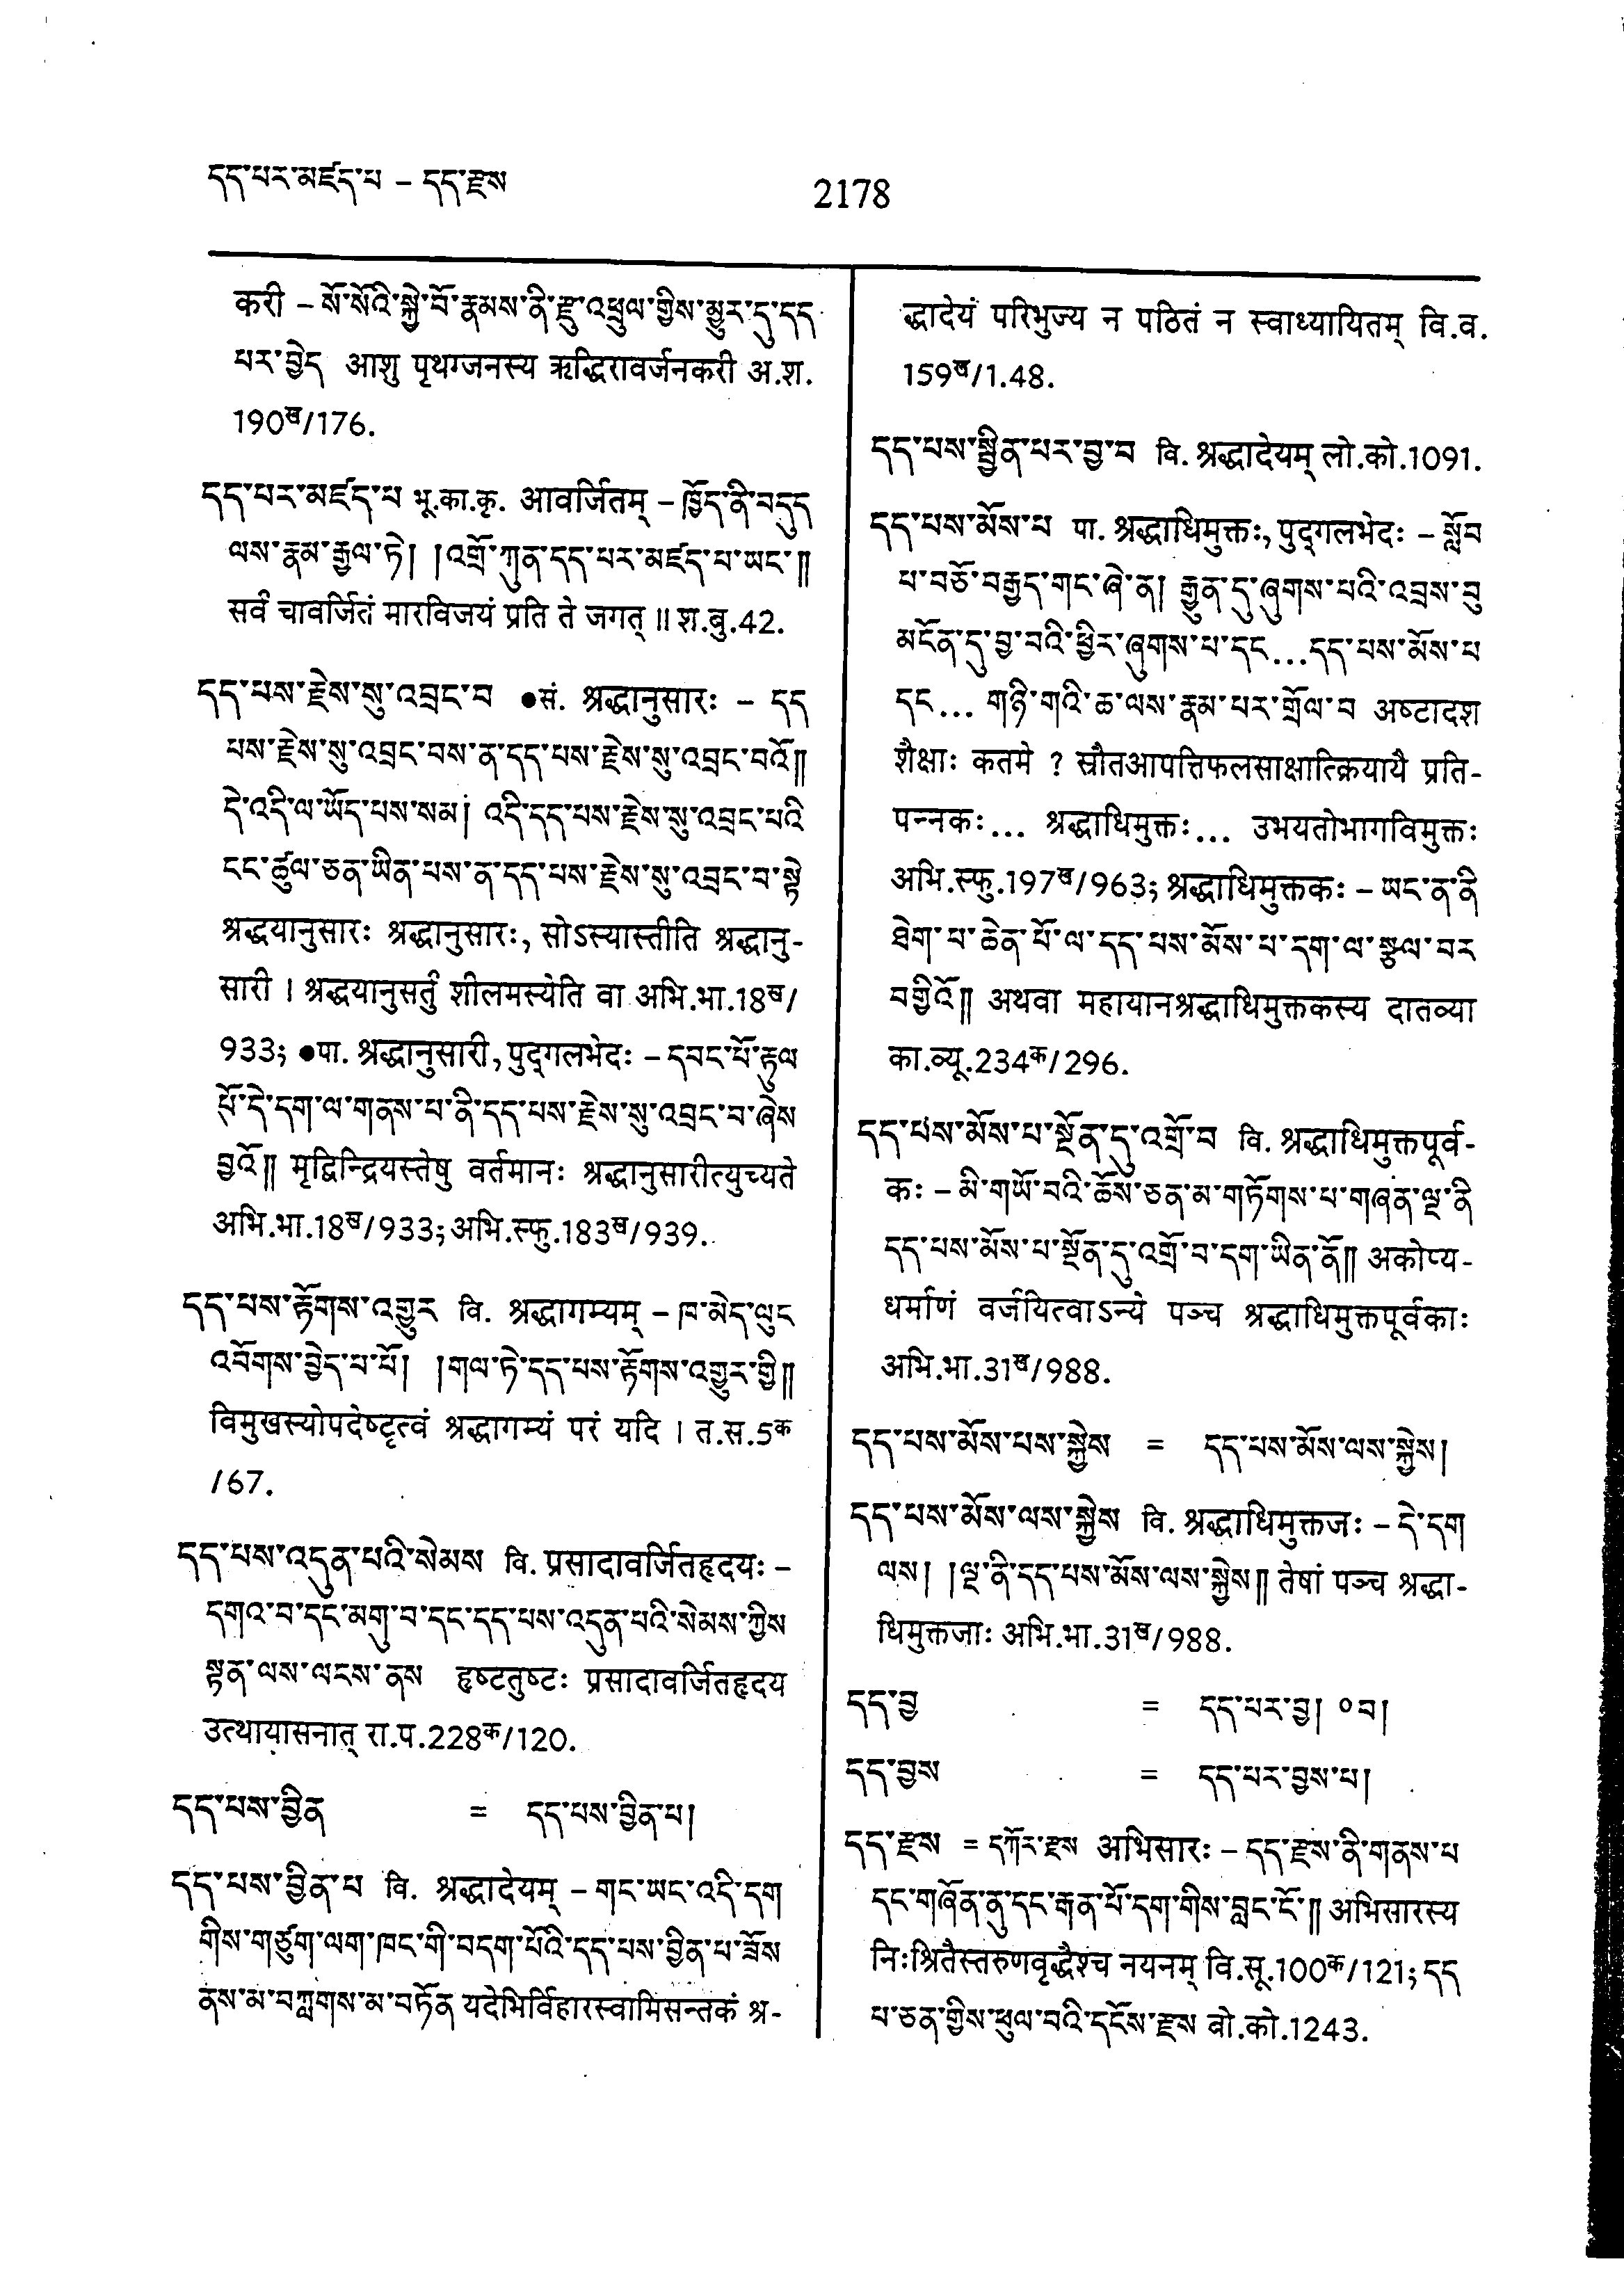 དད་པར་མཛད་པ – དད་རྫས
2178
करी – སོ་སོའི་སྐྱེ་བོ་རྣམས་ནི་རྫུ་འཕྲུལ་གྱིས་མྱུར་དུ་དད
པར་བྱེད आशु पृथग्जनस्य ऋद्धिरावर्जनकरी अ.श.
190ख/176.
དད་པར་མཛད་པ भू.का.कृ. आवर्जितम् – ཁྱོད་ནི་བདུད
ལས་རྣམ་རྒྱལ་ཏེ། །འགྲོ་ཀུན་དད་པར་མཛད་པ་ཡང་༎
सर्वं चावर्जितं मारविजयं प्रति ते जगत् ॥ श.बु.42.
དད་པས་རྗེས་སུ་འབྲང་བ ●सं. श्रद्धानुसारः – དད
པས་རྗེས་སུ་འབྲང་བས་ན་དད་པས་རྗེས་སུ་འབྲང་བའོ༎
དེ་འདི་ལ་ཡོད་པས་སམ། འདི་དད་པས་རྗེས་སུ་འབྲང་པའི
ངང་ཚུལ་ཅན་ཡིན་པས་ན་དད་པས་རྗེས་སུ་འབྲང་བ་སྟེ
श्रद्धयानुसारः श्रद्धानुसारः, सोऽस्यास्तीति श्रद्धानु-
सारी । श्रद्धयानुसर्तुं शीलमस्येति वा अभि.भा.18ख/
933; ●पा. श्रद्धानुसारी, पुद्गलभेदः – དབང་པོ་རྟུལ
པོ་དེ་དག་ལ་གནས་པ་ནི་དད་པས་རྗེས་སུ་འབྲང་བ་ཞེས
བྱའོ༎ मृद्विन्द्रियस्तेषु वर्तमानः श्रद्धानुसारीत्युच्यते
अभि.भा.18ख/933; अभि.स्फु.183ख/939.
དད་པས་རྟོགས་འགྱུར वि. श्रद्धागम्यम् – ཁ་མེད་ལུང
འབོགས་བྱེད་པ་པོ། །གལ་ཏེ་དད་པས་རྟོགས་འགྱུར་གྱི༎
विमुखस्योपदेष्टृत्वं श्रद्धागम्यं परं यदि । त.स.5क
/67.
དད་པས་འདུན་པའི་སེམས वि. प्रसादावर्जितहृदयः –
དགའ་བ་དང་མགུ་བ་དང་དད་པས་འདུན་པའི་སེམས་ཀྱིས
སྟན་ལས་ལངས་ནས हृष्टतुष्टः प्रसादावर्जितहृदय
उत्थायासनात् रा.प.228क/120.
དད་པས་བྱིན = དད་པས་བྱིན་པ།
དད་པས་བྱིན་པ वि. श्रद्धादेयम् – གང་ཡང་འདི་དག
གིས་གཙུག་ལག་ཁང་གི་བདག་པོའི་དད་པས་བྱིན་པ་ཟོས
ནས་མ་བཀླགས་མ་བཏོན यदेभिर्विहारस्वामिसन्तकं श्र-
द्धादेयं परिभुज्य न पठितं न स्वाध्यायितम् वि.व.
159ख/1.48.
དད་པས་སྦྱིན་པར་བྱ་བ वि. श्रद्धादेयम् लो.को.1091.
དད་པས་མོས་པ पा. श्रद्धाधिमुक्तः, पुद्गलभेदः – སློབ
པ་བཅོ་བརྒྱད་གང་ཞེ་ན། རྒྱུན་དུ་ཞུགས་པའི་འབྲས་བུ
མངོན་དུ་བྱ་བའི་ཕྱིར་ཞུགས་པ་དང...དད་པས་མོས་པ
དང... གཉི་གའི་ཆ་ལས་རྣམ་པར་གྲོལ་བ अष्टादश
शैक्षाः कतमे ? स्रौतआपत्तिफलसाक्षात्क्रियायै प्रति-
पन्नकः... श्रद्धाधिमुक्तः... उभयतोभागविमुक्तः
अभि.स्फु.197ख/963; श्रद्धाधिमुक्तकः – ཡང་ན་ནི
ཐེག་པ་ཆེན་པོ་ལ་དད་པས་མོས་པ་དག་ལ་སྩལ་བར
བགྱིའོ༎ अथवा महायानश्रद्धाधिमुक्तकस्य दातव्या
का.व्यू.234क/296.
དད་པས་མོས་པ་སྔོན་དུ་འགྲོ་བ वि. श्रद्धाधिमुक्तपूर्व-
कः – མི་གཡོ་བའི་ཆོས་ཅན་མ་གཏོགས་པ་གཞན་ལྔ་ནི
དད་པས་མོས་པ་སྔོན་དུ་འགྲོ་བ་དག་ཡིན་ནོ༎ अकोप्य-
धर्माणं वर्जयित्वाऽन्ये पञ्च श्रद्धाधिमुक्तपूर्वकाः
अभि.भा.31ख/988.
དད་པས་མོས་པས་སྐྱེས = དད་པས་མོས་ལས་སྐྱེས།
དད་པས་མོས་ལས་སྐྱེས वि. श्रद्धाधिमुक्तजः – དེ་དག
ལས། །ལྔ་ནི་དད་པས་མོས་ལས་སྐྱེས༎ तेषां पञ्च श्रद्धा-
धिमुक्तजाः अभि.भा.31ख/988.
དད་བྱ = དད་པར་བྱ། ०བ།
དད་བྱས = དད་པར་བྱས་པ།
དད་རྫས = དཀོར་རྫས अभिसारः – དད་རྫས་ནི་གནས་པ
དང་གཞོན་ནུ་དང་རྒན་པོ་དག་གིས་བླང་ངོ་༎ अभिसारस्य
निःश्रितैस्तरुणवृद्धैश्च नयनम् वि.सू.100क/121; དད
པ་ཅན་གྱིས་ཕུལ་བའི་དངོས་རྫས बो.को.1243.